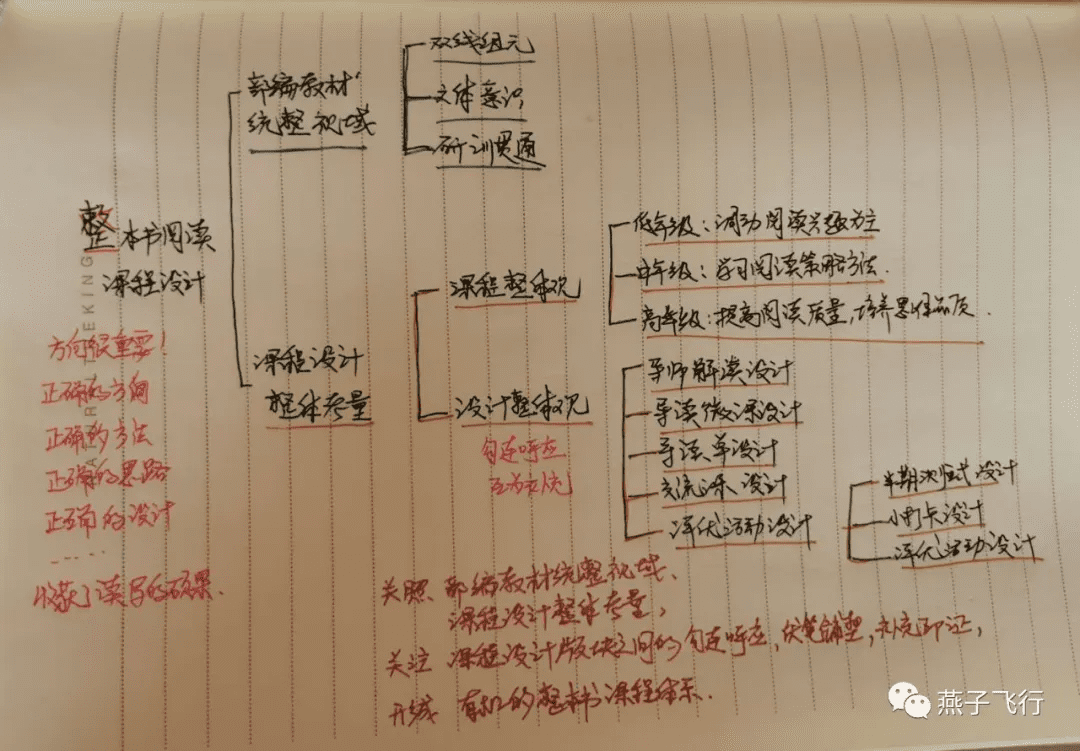 双线组元
部编教材
统整视域
文体意识
研训贯通
整本书阅读
课程设计
低年级：调动阅读兴趣为主
中年级：学习阅读策略方法.
高年级：提高阅读质量，培养思维品质.
课程整体观
课程设计
整体考量
设计整体观
勾连呼应
互为
导师解读设计
导读微课设计
导读单设计
交流课设计
评优活动设计
半期 设计
小打卡设计
评优活动设计
方向很重要！
正确的方向
正确的方法
正确的思路
正确的设计
.....
收获了读写的硕果.
关照 部编教材统整视域、
课程设计整体考量，
关注 课程设计版块之间的勾连呼应，伏笔铺垫，印证，
形成 有机的整本书课程体系.
NATURAL SEEKING
燕子飞行